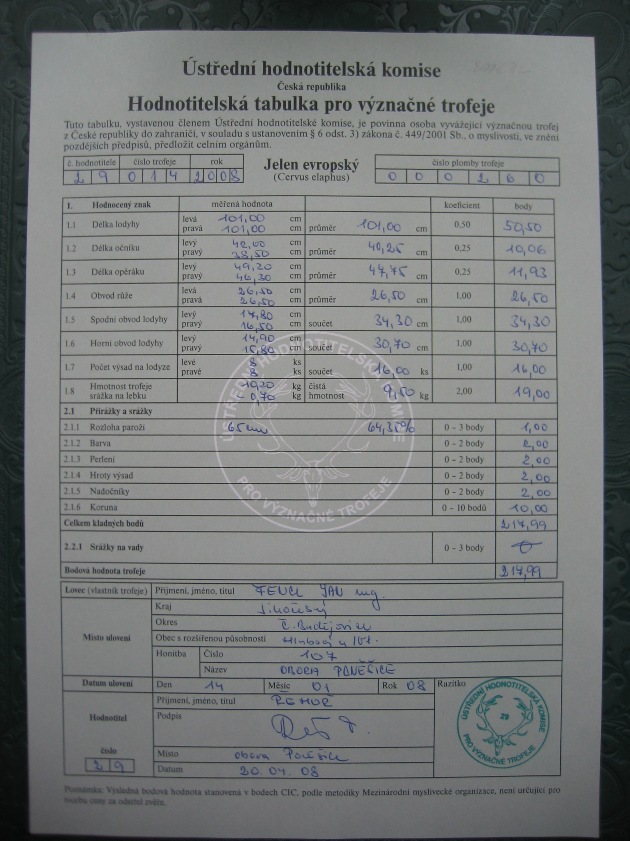 Ústřední hodnotitelská komise
Česká republika
Hodnotitelská tabulka pro význačné trofeje
Tuto tabulku, vystavenou členem Ústřední hodnotitelské komise, je povinna osoba vyvážející význačnou trofej
z České republiky do zahraničí, v souladu s ustanovením § 6 odst. 3) zákona č. 449/2001 Sb., o myslivosti, ve znění
pozdějších předpisů, předložit celním orgánům.
č. hodnotitele číslo trofeje rok Jelen evropský číslo plomby trofeje
29 014 2008 (Cervus elaphus) 000260
1. Hodnocený znak měřená hodnota koeficient body
1.1 Délka lodyhy levá 101,00 cm pravá 101,00 cm průměr 101,00 cm 0,50 50,50
1.2 Délka očníku levý 42,00 cm pravý 38,50 cm průměr 40,25 cm 0,25 10,06
1.3 Délka opěráku levý 49,20 cm pravý 46,30 cm průměr 47,75 cm 0,25 11,93
1.4 Obvod růže levá 26,50 cm pravá 26,50 cm průměr 26,50 cm 1,00 26,50
1.5 Spodní obvod lodyhy levý 17,80 cm pravý 16,50 cm součet 34,30 cm 1,00 34,30
1.6 Horní obvod lodyhy levý 14,90 cm pravý 15,80 cm součet 30,70 cm 1,00 30,70
1.7 Počet výsad na lodyze levé 8 ks pravé 8 ks součet 16,00 ks 1,00 16,00
1.8 Hmotnost trofeje 10,20 kg čistá
srážka na lebku - 0,70 kg hmotnost 9,50 kg 2,00 19,00
2.1 Přirážky a srážky
2.1.1 Rozloha paroží 65 cm 64,35% 0 – 3 body 1,00
2.1.2 Barva 0 – 2 body 2,00
2.1.3 Perlení 0 – 2 body 2,00
2.1.4 Hroty výsad 0 – 2 body 2,00
2.1.5 Nadočníky 0 – 2 body 2,00
2.1.6 Koruna 0 – 10 bodů 10,00
Celkem kladných bodů 217,99
2.2.1 Srážky na vady 0 – 3 body
Bodová hodnota trofeje 217,99
Lovec (vlastník trofeje) Příjmení, jméno, titul FENCL JAN Ing.
Místo ulovení Kraj Jihočeský
Okres Č. Budějovice
Obec s rozšířenou působností Hluboká n/Vlt.
Honitba Číslo 107
Název OBORA PONĚŠICE
Datum ulovení Den 14 Měsíc 01 Rok 08 Razítko
Hodnotitel Příjmení, jméno, titul
Podpis
číslo 29
Místo obora Poněšice
Datum 20.04.08
ÚSTŘEDNÍ HODNOTITELSKÁ KOMISE
29
PRO VÝZNAČNÉ TROFEJE
Poznámka: Výsledná bodová hodnota stanovená v bodech CIC, podle metodiky Mezinárodní myslivecké organizace, není určující pro
tvorbu ceny za odstřel zvěře.
ÚSTŘEDNÍ HODNOTITELSKÁ KOMISE
PRO VÝZNAČNÉ TROFEJE